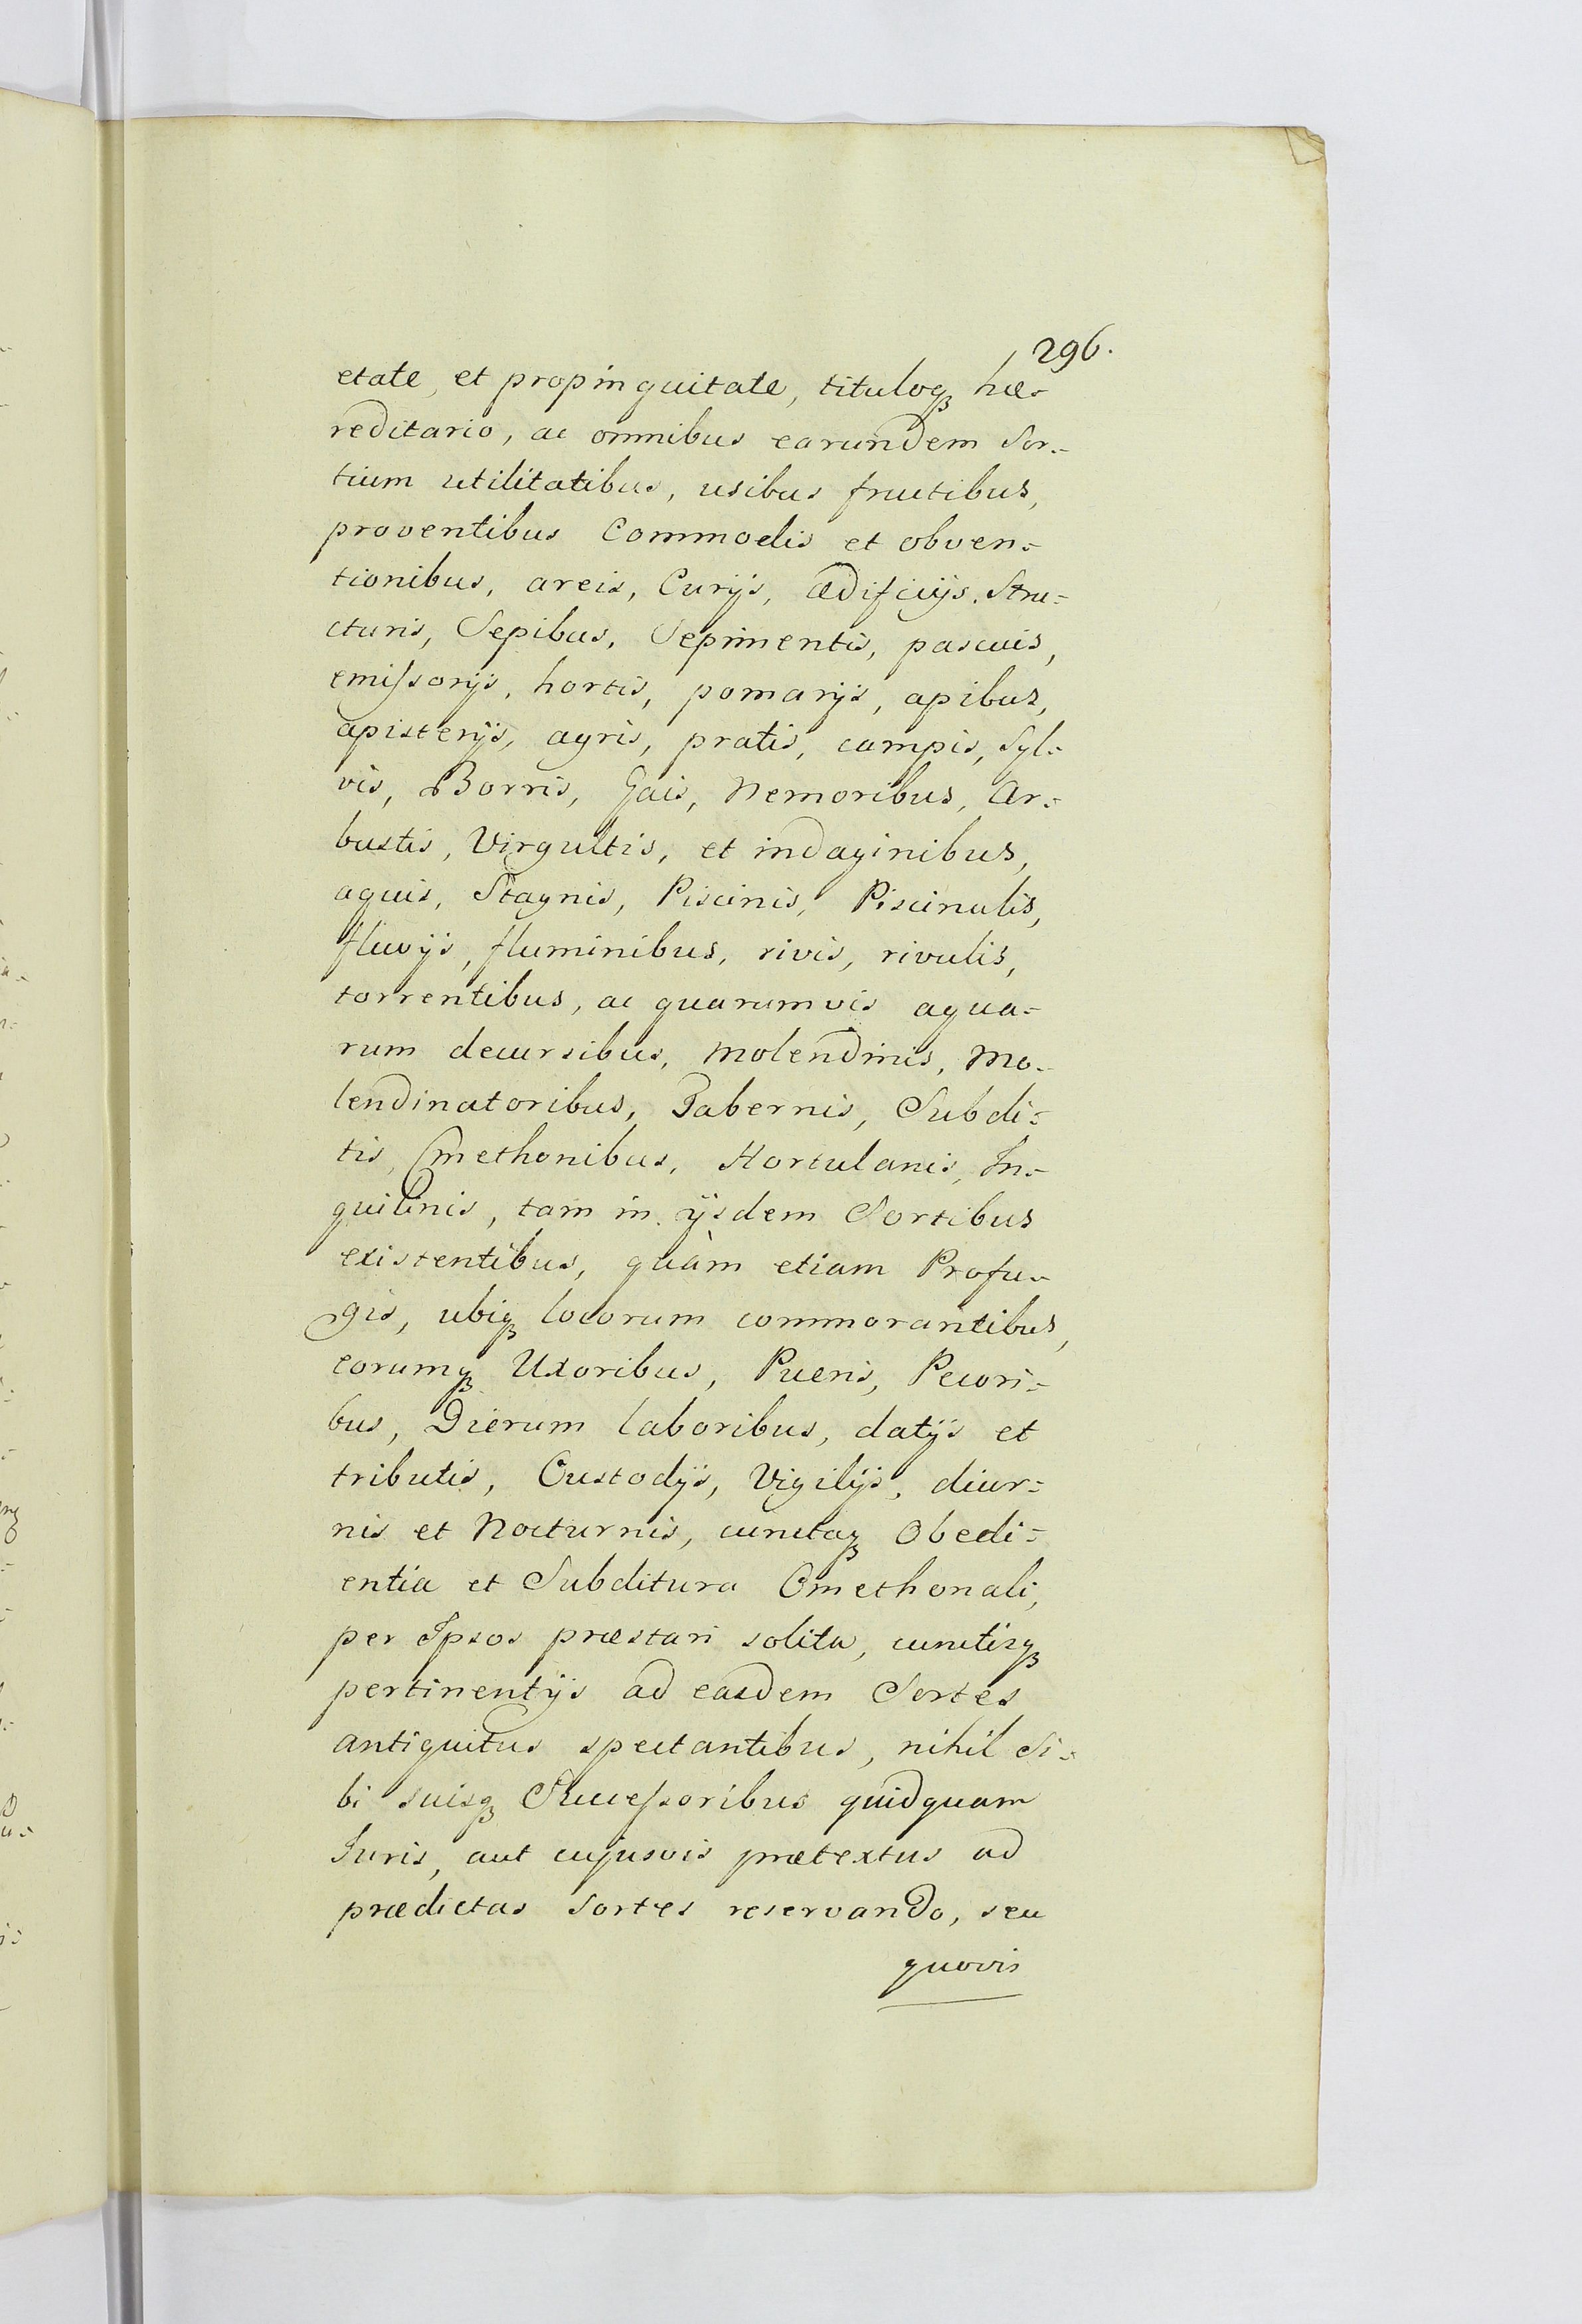 296.
etate, et propinquitate, tituloqꝫ hæ-
reditario, ac omnibus earundem Sor-
tium utilitatibus, usibus fructibus,
proventibus Commodis et obven-
tionibus, areis, Curijs, ædificijs, Stru-
cturis, Sepibus, Sepimentis, pascuis,
emissorijs, hortis, pomarijs, apibus,
apisterijs, agris, pratis, campis, Syl-
vis, Borris, Gais, Nemoribus, Ar-
bustis, Virgultis, et indaginibus,
aquis, Stagnis, Piscinis, Piscinulis,
fluvijs, fluminibus, rivis, rivulis,
torrentibus, ac quarumvis aqua-
rum decursibus, Molendinis, Mo-
lendinatoribus, Tabernis, Subdi-
tis, Cmethonibus, Hortulanis, In-
quilinis, tam in ijsdem Sortibus
existentibus, quàm etiam Profu-
gis, ubiqꝫ locorum commorantibus,
eorumqꝫ Uxoribus, Pueris, Pecori-
bus, Dierum laboribus, datijs et
tributis, Custodijs, Vigilijs, diur-
nis et Nocturnis, cunctaqꝫ Obedi-
entia et Subditura Cmethonali,
per Ipsos præstari solita, cunctisqꝫ
pertinentijs ad easdem Sortes
antiquitus spectantibus, nihil Si-
bi suisqꝫ Successoribus quidquam
Juris, aut cujusvis prætextus ad
prædictas Sortes reservando, seu
quovis